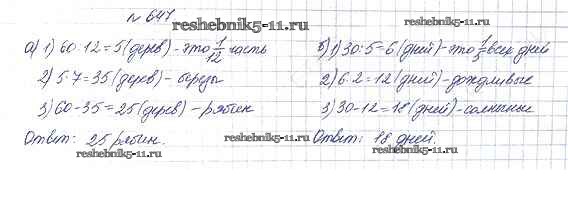 № 647
reshebnik5-11.ru
а) 1) 60:12=5 (дерев) - это 1/12 часть
2) 5·7=35 (дерев) - березы
3) 60-35=25 (дерев) - рябин
Ответ: 25 рябин.
reshebnik5-11.ru
б) 1) 30:5=6 (дней) - это 1/5 всех дней
2) 6·2=12 (дней) - дождливые
3) 30-12=18 (дней) - солнечные
Ответ: 18 дней.
reshebnik5-11.ru
reshebnik5-11.ru
reshebnik5-11.ru